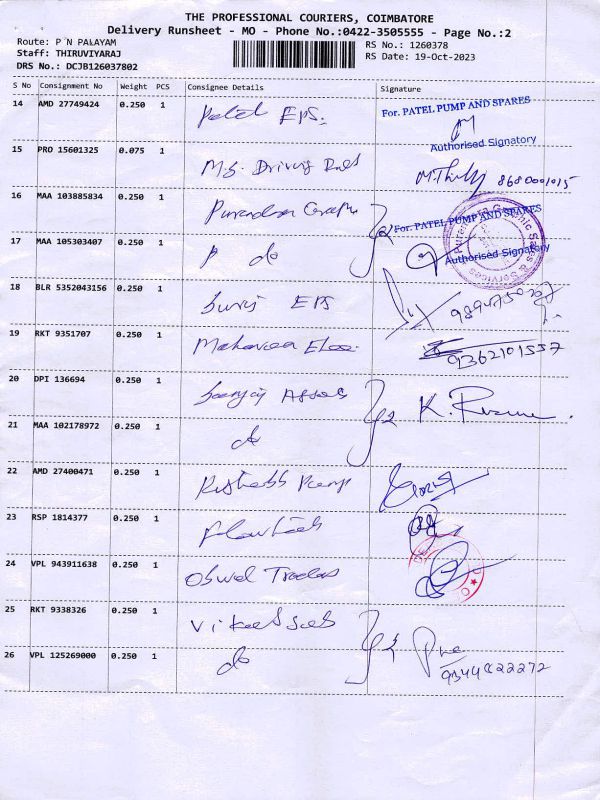 THE PROFESSIONAL COURIERS, COIMBATORE
Delivery Runsheet - MO - Phone No.:0422-3505555 - Page No.:2
Route: P N PALAYAM
Staff: THIRUVIYARAJ
DRS No.: DCJB126037802
RS No.: 1260378
RS Date: 19-Oct-2023
S No Consignment No Weight PCS Consignee Details Signature
14 AMD 27749424 0.250 1 Patel EPS. For. PATEL PUMP AND SPARES
Authorised Signatory
15 PRO 15601325 0.075 1 M.S. Driving 8680001015
16 MAA 103885834 0.250 1 For. PATEL PUMP AND SPARES
17 MAA 105303407 0.250 1 P do Authorised Signatory
18 BLR 5352043156 0.250 1 Suraj EPS
19 RKT 9351707 0.250 1 9362101557
20 DPI 136694 0.250 1
21 MAA 102178972 0.250 1 do
22 AMD 27400471 0.250 1
23 RSP 1814377 0.250 1
24 VPL 943911638 0.250 1 Oswal Traders
25 RKT 9338326 0.250 1
26 VPL 125269000 0.250 1 do 9344822272